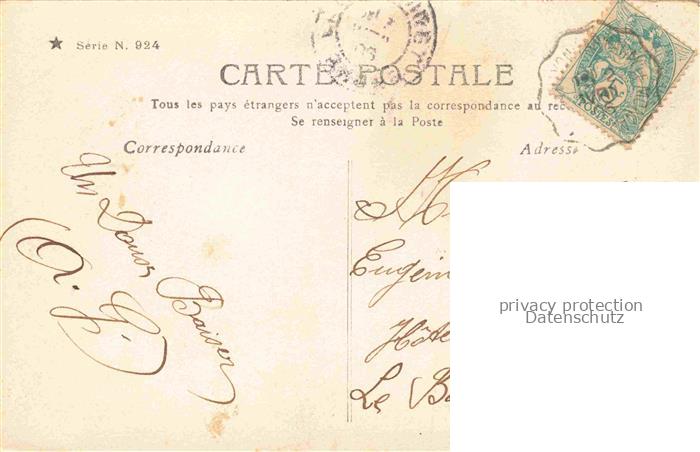 ★ Série N. 924
CARTE POSTALE
Tous les pays étrangers n'acceptent pas la correspondance au rec
Se renseigner à la Poste
Correspondance
Adresse
Un Doux
Baiser
A. G.
M
Eugén
Hôte
Le B
POSTES
privacy protection
Datenschutz